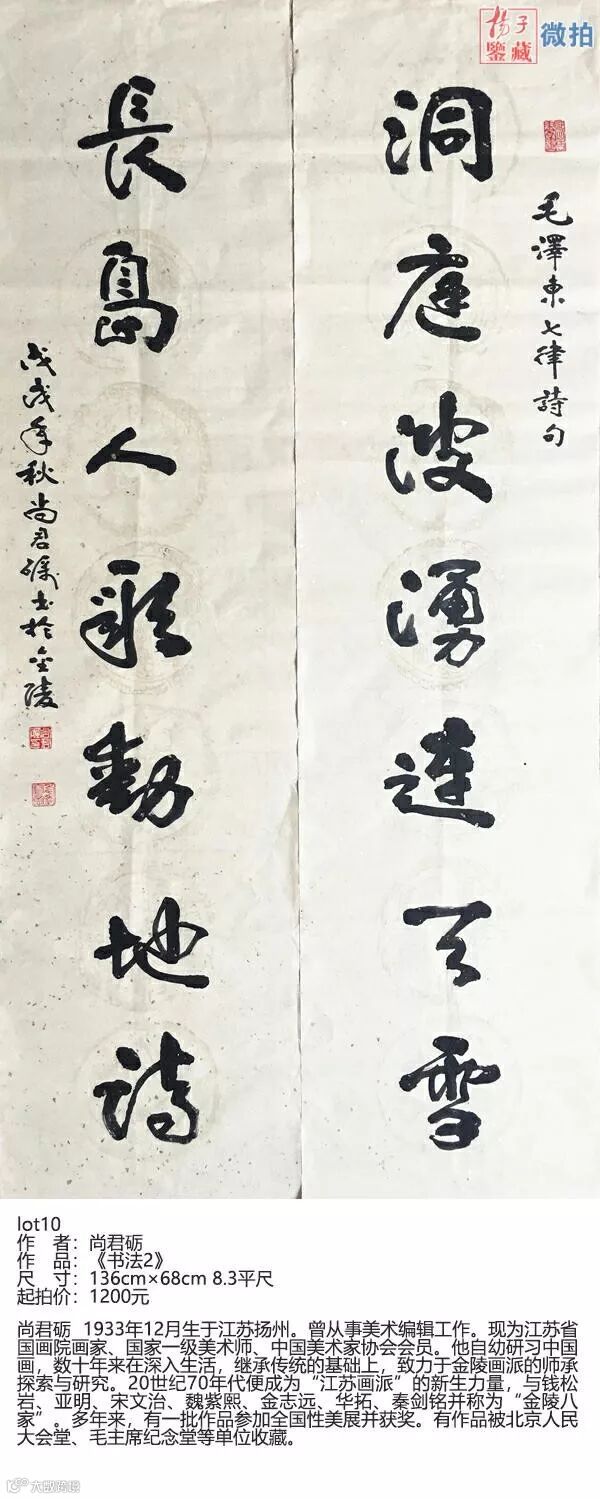 揚子
鑒藏
微拍
毛澤東七律詩句
洞庭波湧連天雪
長島人歌動地詩
戊戌年秋尚君礪书於金陵
lot10
作 者：尚君砺
作 品：《书法2》
尺 寸：136cm×68cm 8.3平尺
起拍价：1200元
尚君砺 1933年12月生于江苏扬州。曾从事美术编辑工作。现为江苏省
国画院画家、国家一级美术师、中国美术家协会会员。他自幼研习中国
画，数十年来在深入生活，继承传统的基础上，致力于金陵画派的师承
探索与研究。20世纪70年代便成为“江苏画派”的新生力量，与钱松
岩、亚明、宋文治、魏紫熙、金志远、华拓、秦剑铭并称为“金陵八
家”。多年来，有一批作品参加全国性美展并获奖。有作品被北京人民
大会堂、毛主席纪念堂等单位收藏。
大数跨境